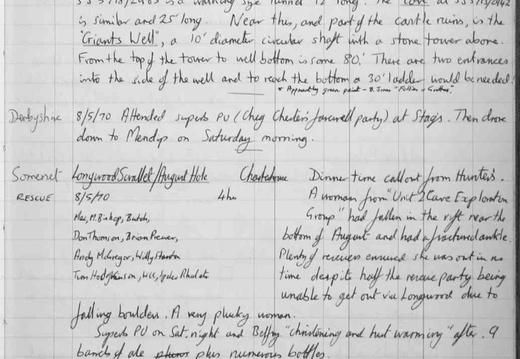 is similar and 25' long. Near this, and part of the castle ruins, is the
"Giants Well", a 10' diameter circular shaft with a stone tower above.
From the top of the tower to well bottom is some 80'. There are two entrances
into the side of the well and to reach the bottom a 30' ladder would be needed!
Derbyshire 8/5/70 Attended superb PU (Cheg Chester's farewell party) at Stags. Then drove
down to Mendip on Saturday morning.
Somerset Longwood Swallet/August Hole Charterhouse Dinner time callout from Hunters.
RESCUE 8/5/70 4hr A woman from "Unit 2 Cave Exploration
Group" had fallen in the rift near the
bottom of August and had a fractured ankle.
Plenty of rescuers ensured she was out in no
time despite half the rescue party being
unable to get out via Longwood due to
Don Thomson, Brian
Andy McGregor, Willy Stanton
falling boulders. A very plucky woman.
Superb PU on Sat. night and Belfry "christening and hut warming" after. 9
bands of ale plus numerous bottles.